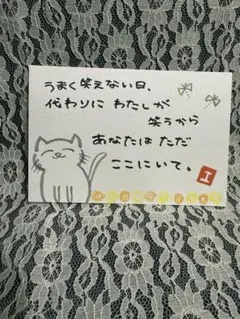 うまく笑えない日、
代わりに わたしが
笑うから
あなたは ただ
ここにいて。
エ